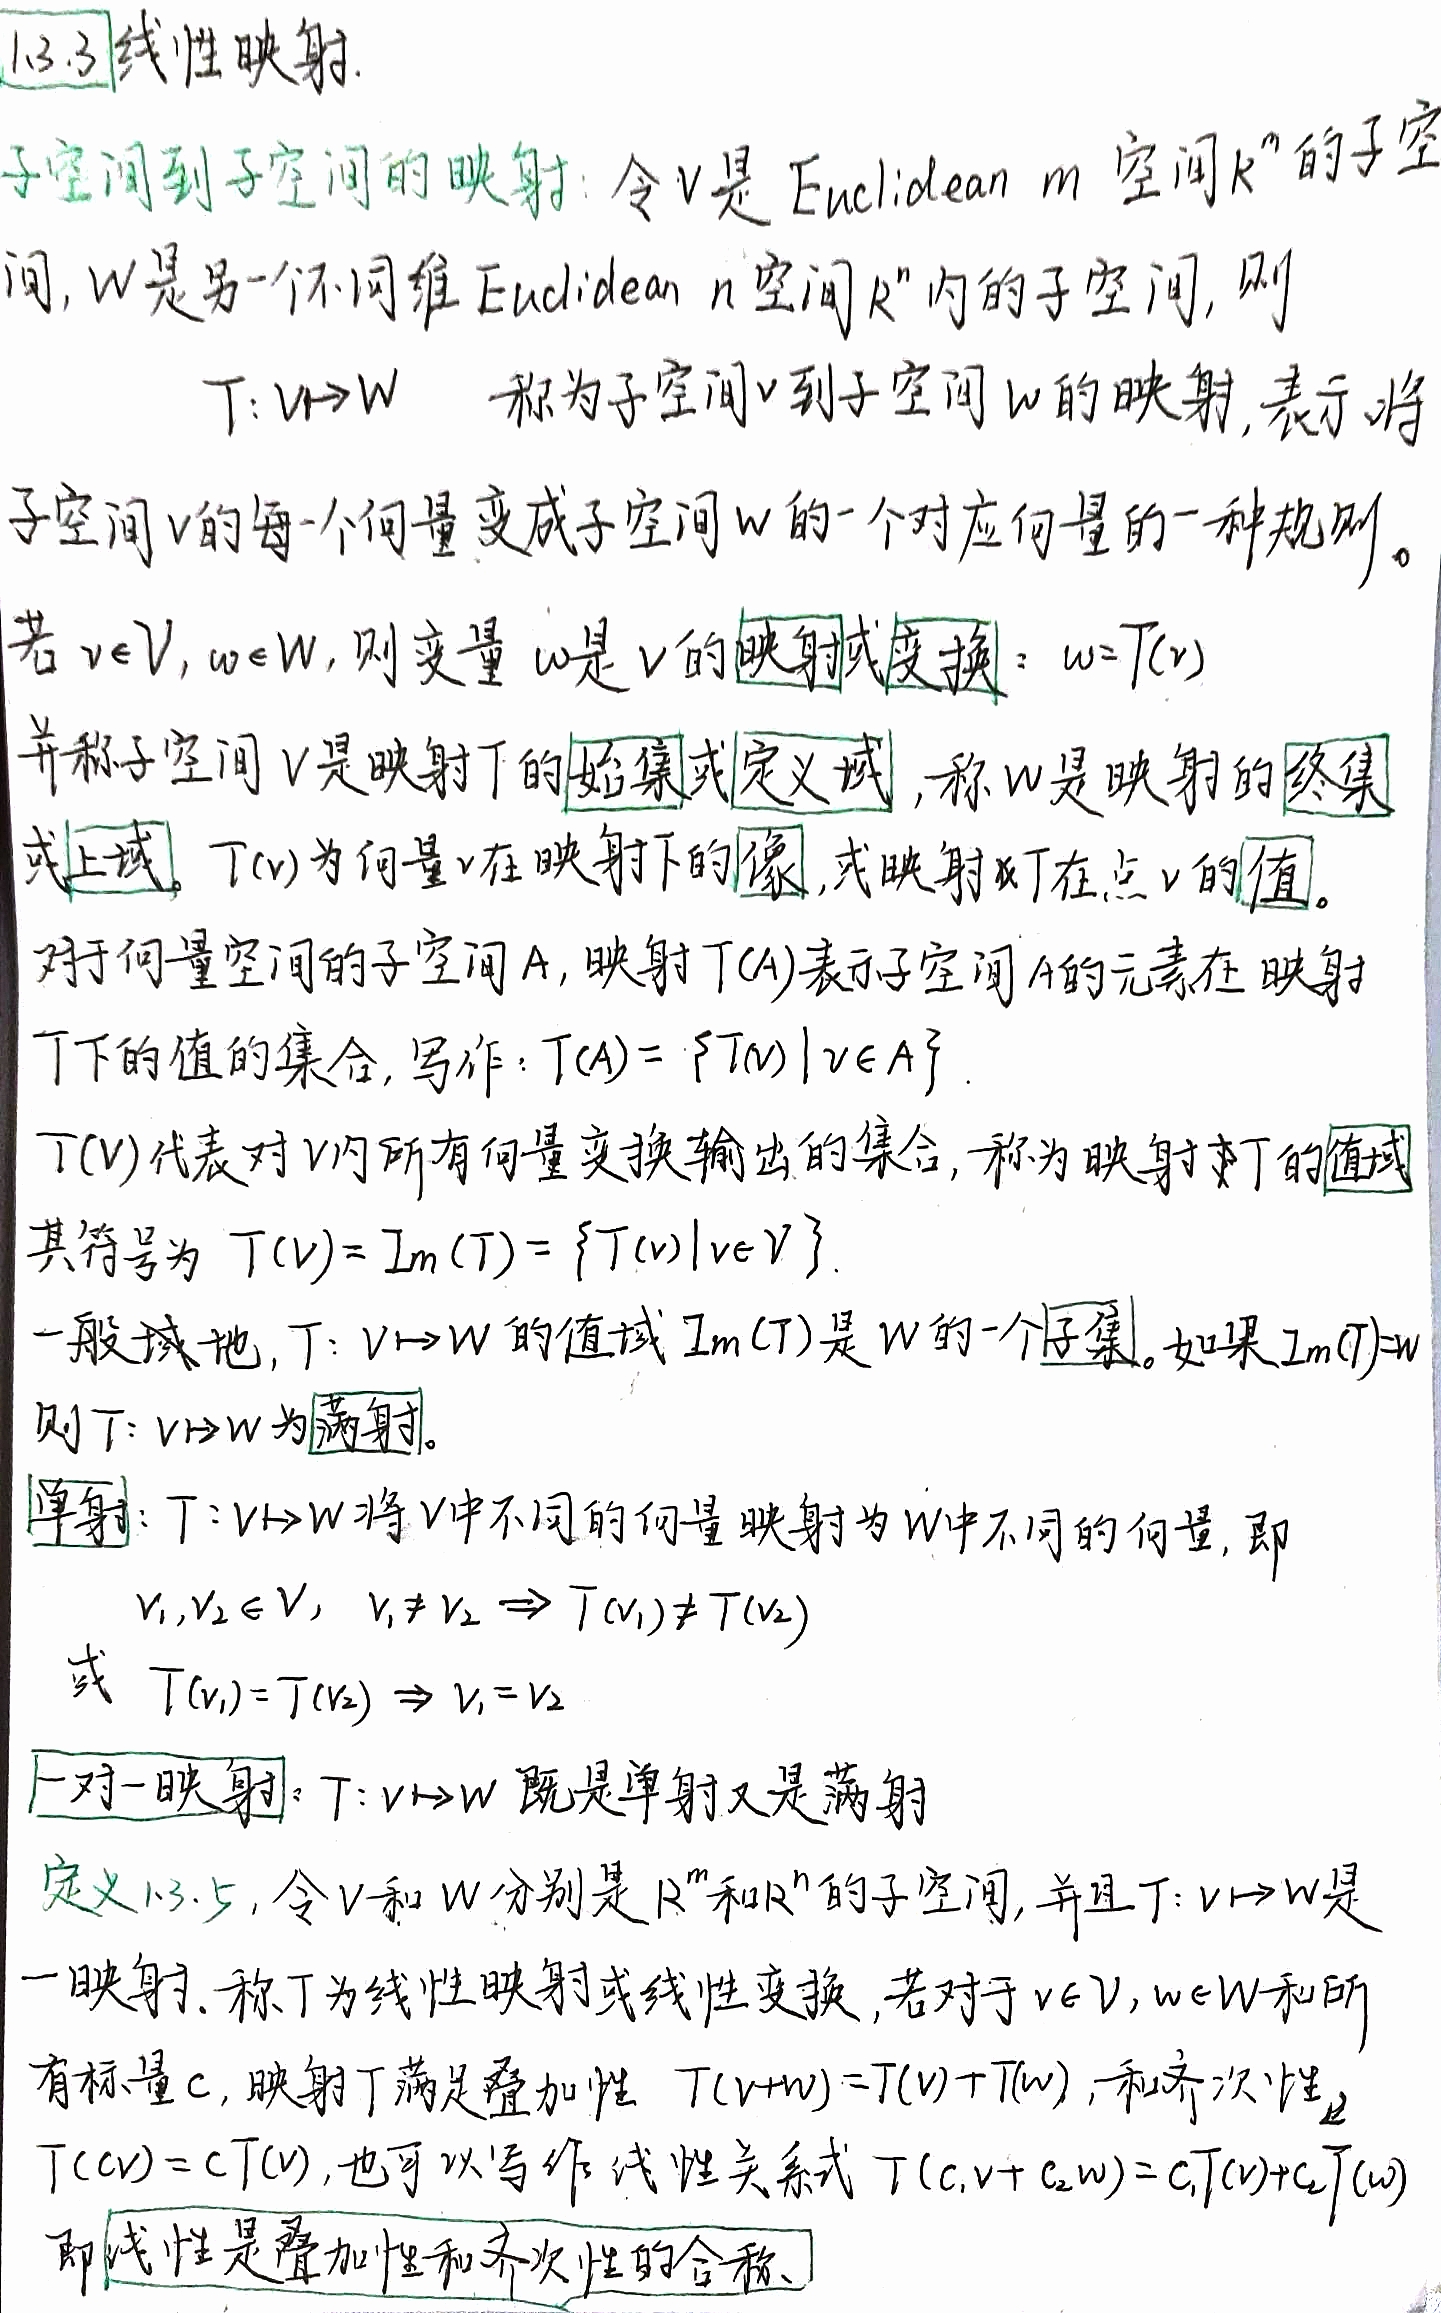 1.3.3 线性映射.
子空间到子空间的映射: 令V是 Euclidean m 空间R^m的子空
间, W是另一个不同维 Euclidean n 空间R^n内的子空间, 则
T: V↦W 称为子空间V到子空间W的映射, 表示将
子空间V的每一个向量变成子空间W的一个对应向量的一种规则。
若 v∈V, w∈W, 则变量 w是v的映射或变换: w=T(v)
并称子空间V是映射T的始集或定义域, 称W是映射的终集
或上域。T(v)为向量v在映射下的像, 或映射T在点v的值。
对于向量空间的子空间A, 映射T(A)表示子空间A的元素在映射
T下的值的集合, 写作: T(A) = {T(v) | v∈A}.
T(V)代表对V内所有向量变换输出的集合, 称为映射T的值域
其符号为 T(V) = Im(T) = {T(v) | v∈V}.
一般域地, T: V↦W 的值域 Im(T)是W的一个子集。如果Im(T)=W
则T: V↦W为满射。
单射: T: V↦W将V中不同的向量映射为W中不同的向量, 即
v₁,v₂∈V, v₁≠v₂ ⇒ T(v₁)≠T(v₂)
或 T(v₁)=T(v₂) ⇒ v₁=v₂
一对一映射: T: V↦W 既是单射又是满射
定义1.3.5, 令V和W分别是R^m和R^n的子空间, 并且T: V↦W是
一映射. 称T为线性映射或线性变换, 若对于v∈V, w∈W和所
有标量c, 映射T满足叠加性 T(v+w)=T(v)+T(w), 和齐次性
T(cv)=cT(v), 也可以写作线性关系式 T(c₁v+c₂w)=c₁T(v)+c₂T(w)
即线性是叠加性和齐次性的合称.